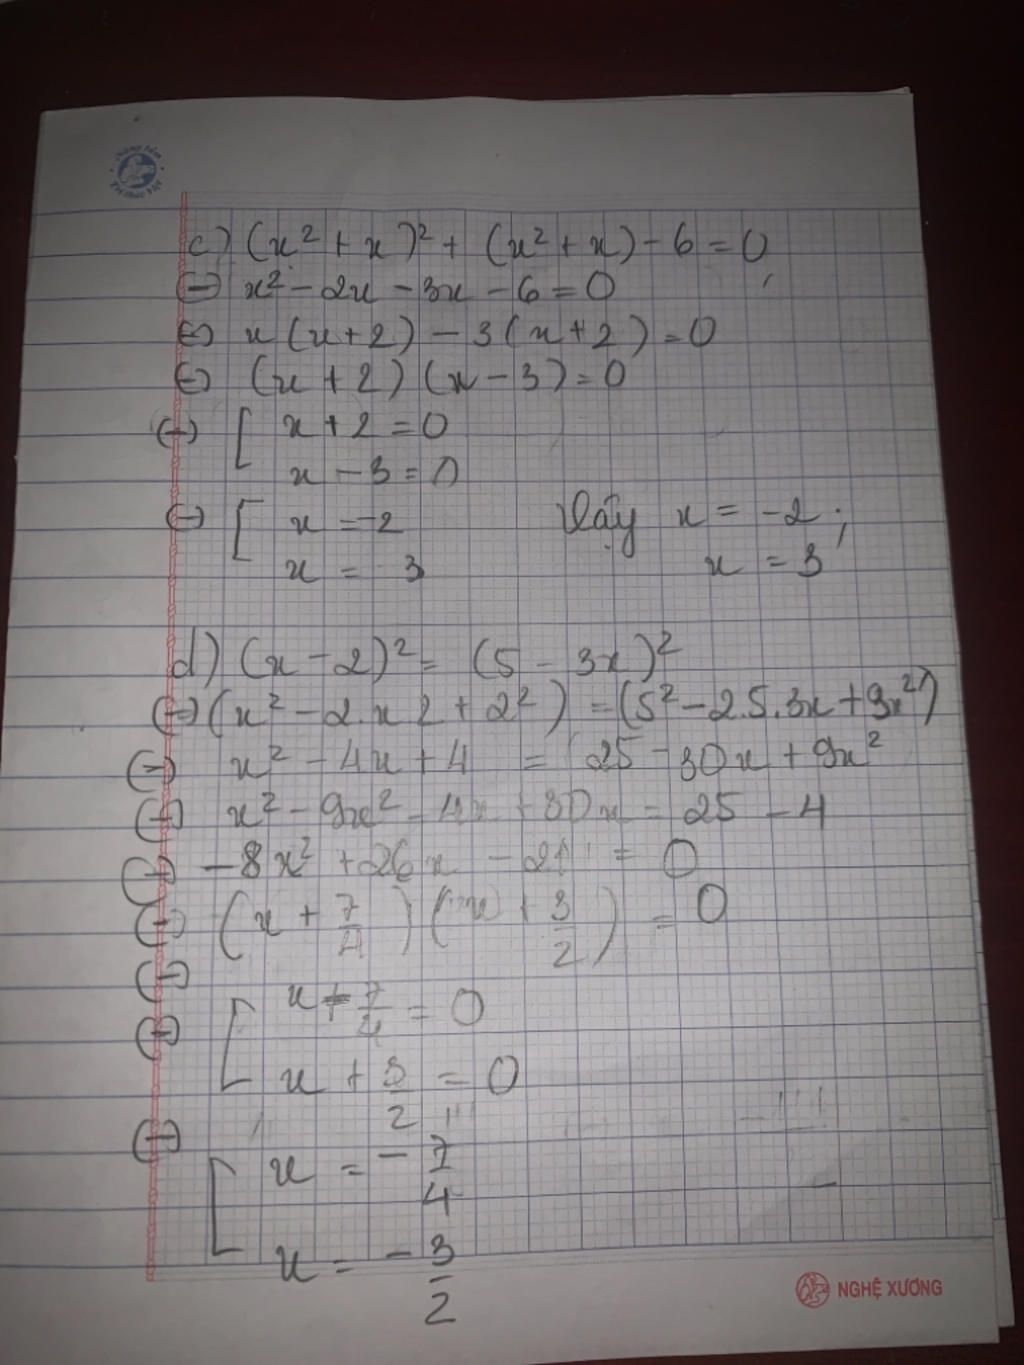 c) (x² + x)² + (x² + x) - 6 = 0
(-) x² - 2x - 3x - 6 = 0
(-) x (x + 2) - 3 (x + 2) = 0
(-) (x + 2) (x - 3) = 0
(-) [ x + 2 = 0
x - 3 = 0
(-) [ x = -2 Vậy x = -2 ;
x = 3 x = 3
d) (x - 2)² = (5 - 3x)²
(-) (x² - 2.x 2 + 2²) = (5² - 2.5.3x + 9x²)
(-) x² - 4x + 4 = 25 - 30x + 9x²
(-) x² - 9x² - 4x + 30x = 25 - 4
(-) -8x² + 26x - 21 = 0
(-) (x + 7/4) (x + 3/2) = 0
(-)
(-) [ x + 7/4 = 0
x + 3/2 = 0
(-) [ x = - 7/4
x = - 3/2
NGHỆ XƯƠNG